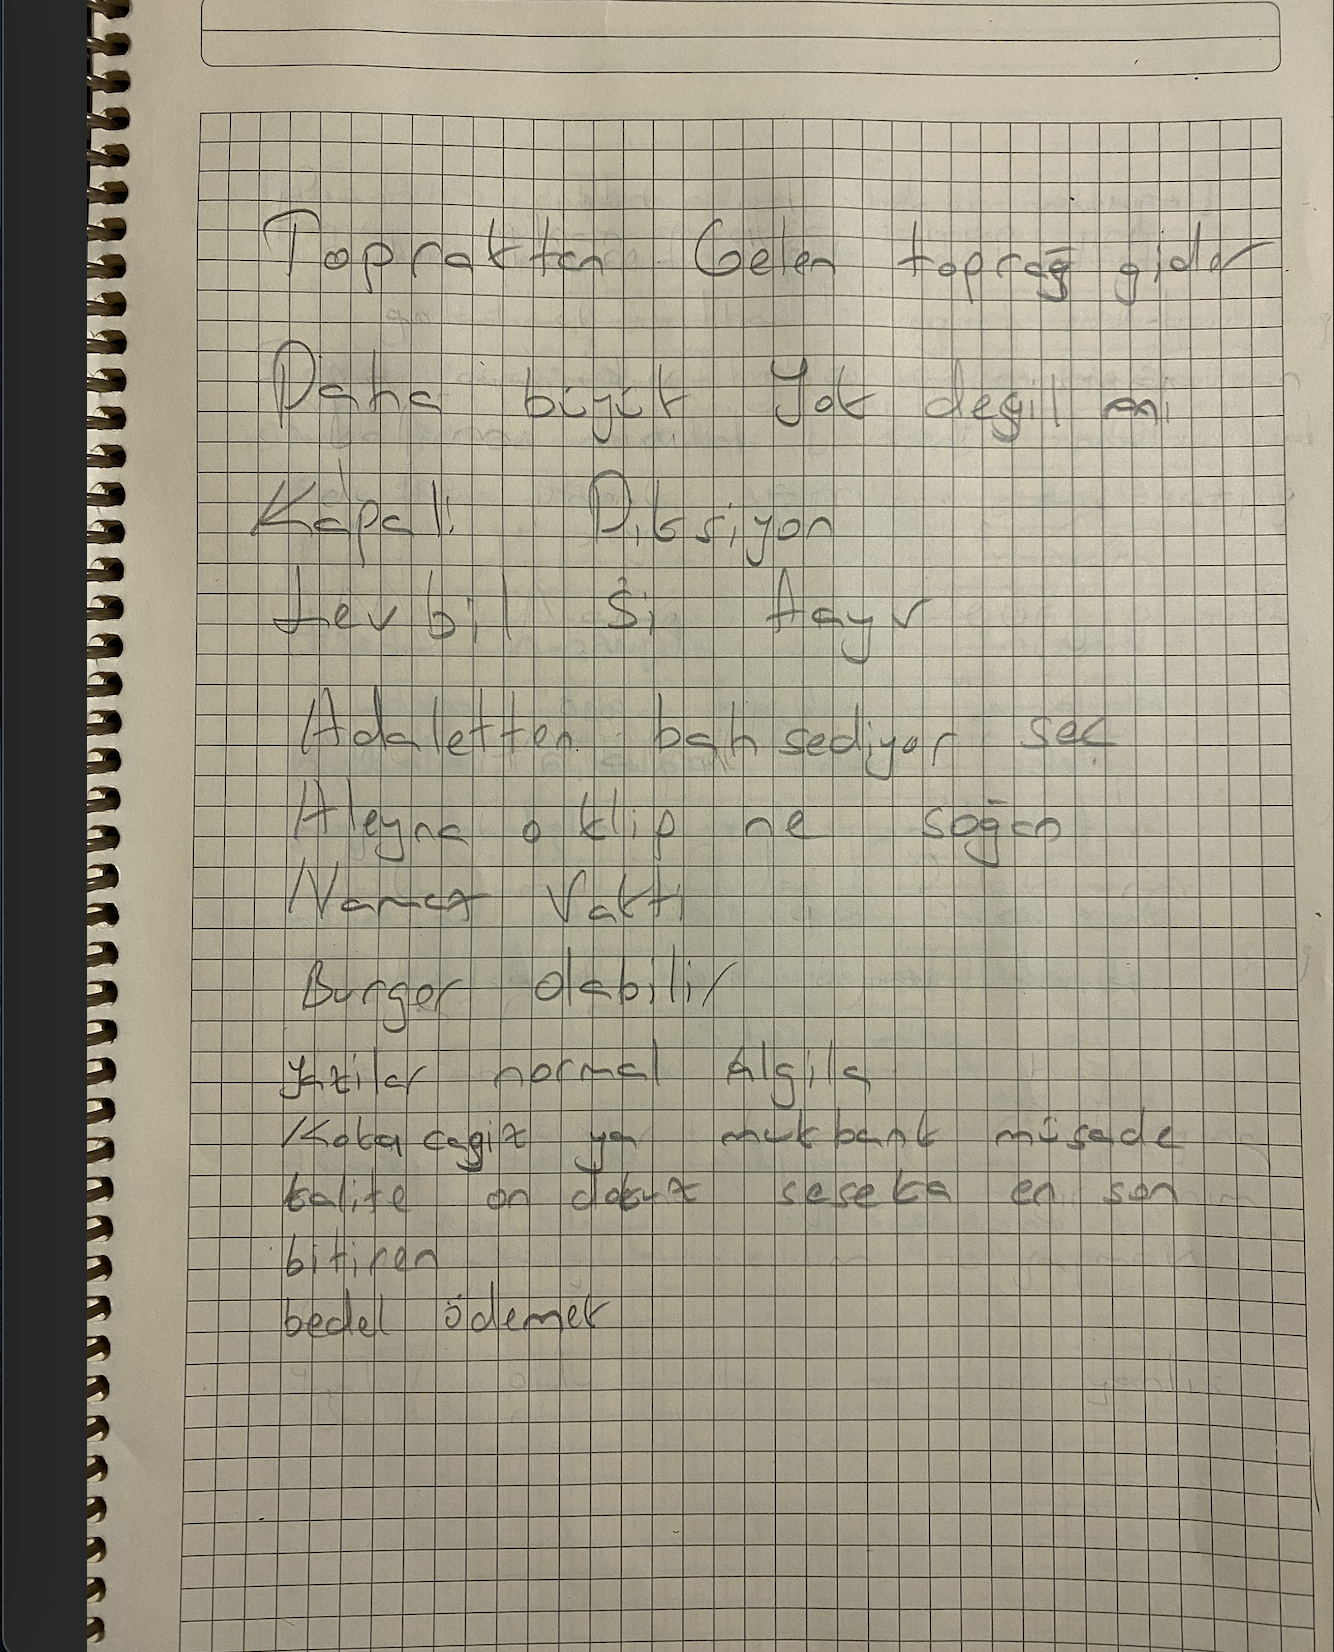 Topraktan Gelen toprağ gider
Daha büyük Yok değil mi
Kapalı Diksiyon
bil Si
Adaletten bahsediyor seç
Aleyna o klip ne soğan
Namaz Vakti
Burger olabilir
Yazilar normal Algila
Kokacagiz ya mukbank müsade
kalite on dokuz seseka en son
bitiren
bedel ödemek